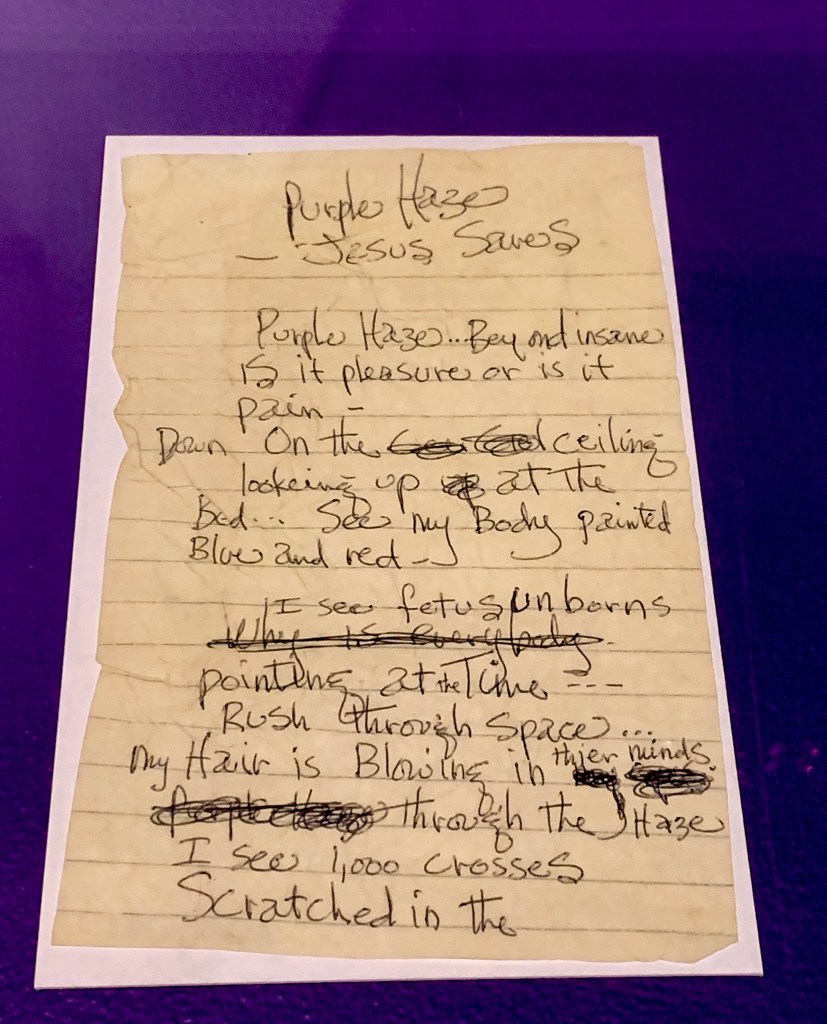 Purple Haze
- Jesus Saves
Purple Haze...Beyond insane
is it pleasure or is it
pain -
Down On the ceiling
lookeing up at the
Bed... See my Body painted
Blue and red -
I see fetus unborns
Why is everybody
pointing at the Time ---
Rush through space...
my Hair is Blowing in thier minds.
Purple Haze through the Haze
I see 1,000 crosses
Scratched in the